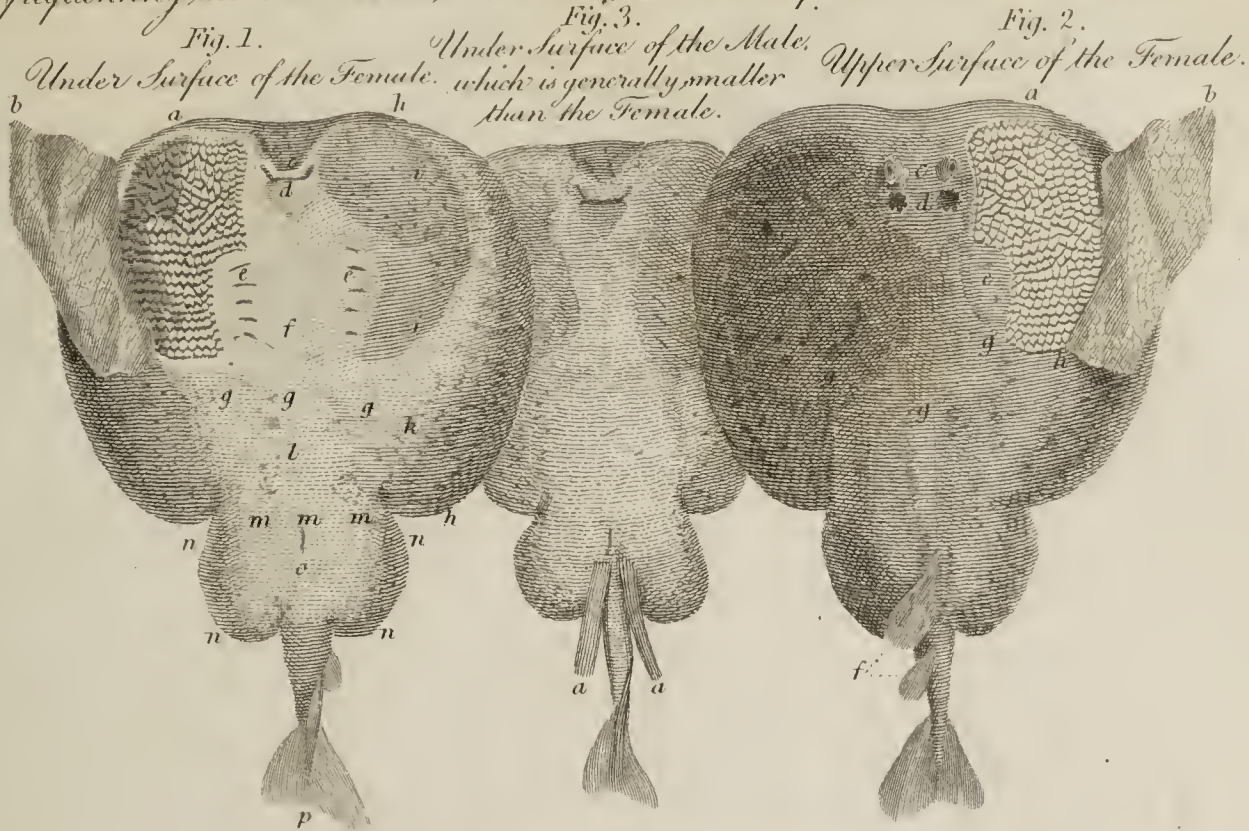 Fig. 1.
Under Surface of the Female.
Fig. 3.
Under Surface of the Male.
which is generally smaller
than the Female.
Fig. 2.
Upper Surface of the Female.
b
a
h
c
d
i
e
e
f
i
g
g
g
k
l
m
m
m
h
n
n
o
n
n
p
a
a
a
b
c
d
e
g
h
g
g
f